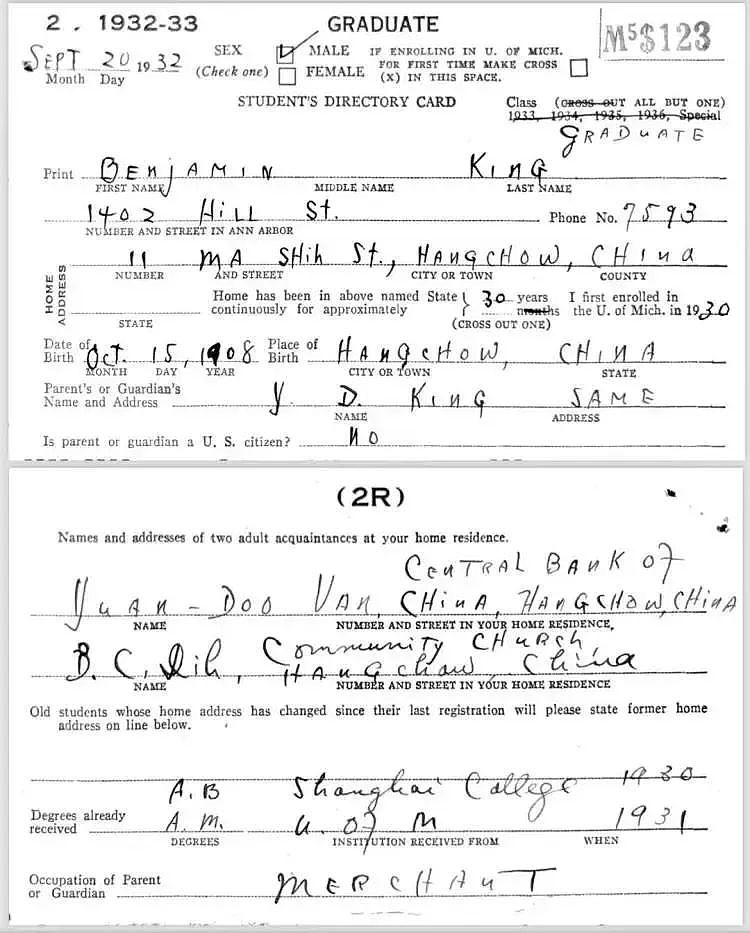 2 . 1932-33 GRADUATE M5$123
SEPT 20 1932 SEX MALE IF ENROLLING IN U. OF MICH.
Month Day (Check one) FEMALE FOR FIRST TIME MAKE CROSS
(X) IN THIS SPACE.
STUDENT'S DIRECTORY CARD Class (CROSS OUT ALL BUT ONE)
1933, 1934, 1935, 1936, Special
GRADUATE
Print BENJAMIN KING
FIRST NAME MIDDLE NAME LAST NAME
1402 HILL St. Phone No. 7593
NUMBER AND STREET IN ANN ARBOR
11 MA SHIH St., HANGCHOW, CHINA
NUMBER AND STREET CITY OR TOWN COUNTY
HOME ADDRESS
Home has been in above named State 30 years I first enrolled in
continuously for approximately months the U. of Mich. in 1930
STATE (CROSS OUT ONE)
Date of Birth OCT. 15, 1908 Place of Birth HANGCHOW, CHINA
MONTH DAY YEAR CITY OR TOWN STATE
Parent's or Guardian's
Name and Address Y. D. KING SAME
NAME ADDRESS
Is parent or guardian a U. S. citizen? NO
(2R)
Names and addresses of two adult acquaintances at your home residence.
CENTRAL BANK OF
YUAN-DOO VAN, CHINA, HANGCHOW, CHINA
NAME NUMBER AND STREET IN YOUR HOME RESIDENCE,
Community CHURCH,
B. C. Dih, HANGchow, China
NAME NUMBER AND STREET IN YOUR HOME RESIDENCE
Old students whose home address has changed since their last registration will please state former home
address on line below.
A.B Shanghai College 1930
Degrees already
received A.M. U. of M 1931
DEGREES INSTITUTION RECEIVED FROM WHEN
Occupation of Parent
or Guardian MERCHANT